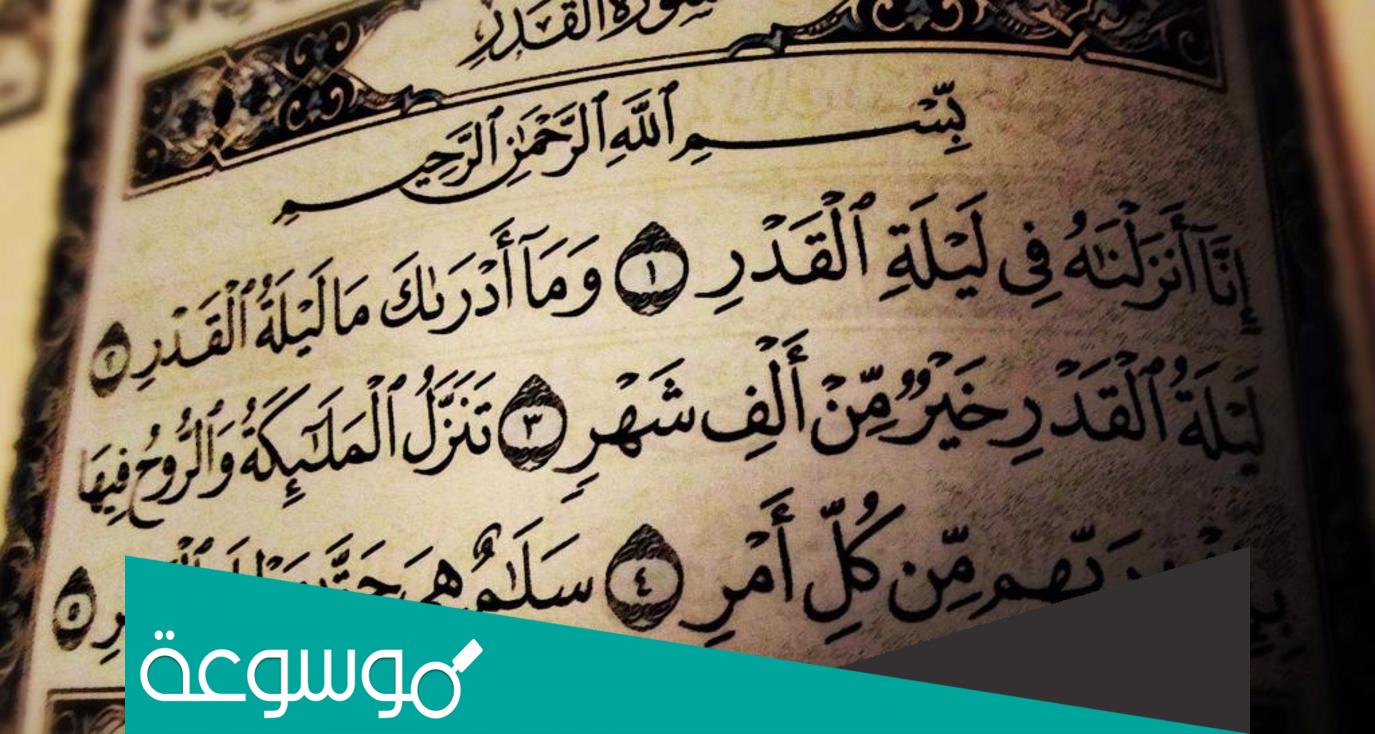 سُورَةُ القَدْرِ
بِّسْمِ ٱللَّهِ ٱلرَّحْمَٰنِ ٱلرَّحِيمِ
إِنَّآ أَنزَلْنَٰهُ فِى لَيْلَةِ ٱلْقَدْرِ ١ وَمَآ أَدْرَىٰكَ مَا لَيْلَةُ ٱلْقَدْرِ ٢
لَيْلَةُ ٱلْقَدْرِ خَيْرٌ مِّنْ أَلْفِ شَهْرٍ ٣ تَنَزَّلُ ٱلْمَلَٰٓئِكَةُ وَٱلرُّوحُ فِيهَا
رَبِّهِم مِّن كُلِّ أَمْرٍ ٤ سَلَٰمٌ هِىَ حَتَّىٰ ٥
موسوعة